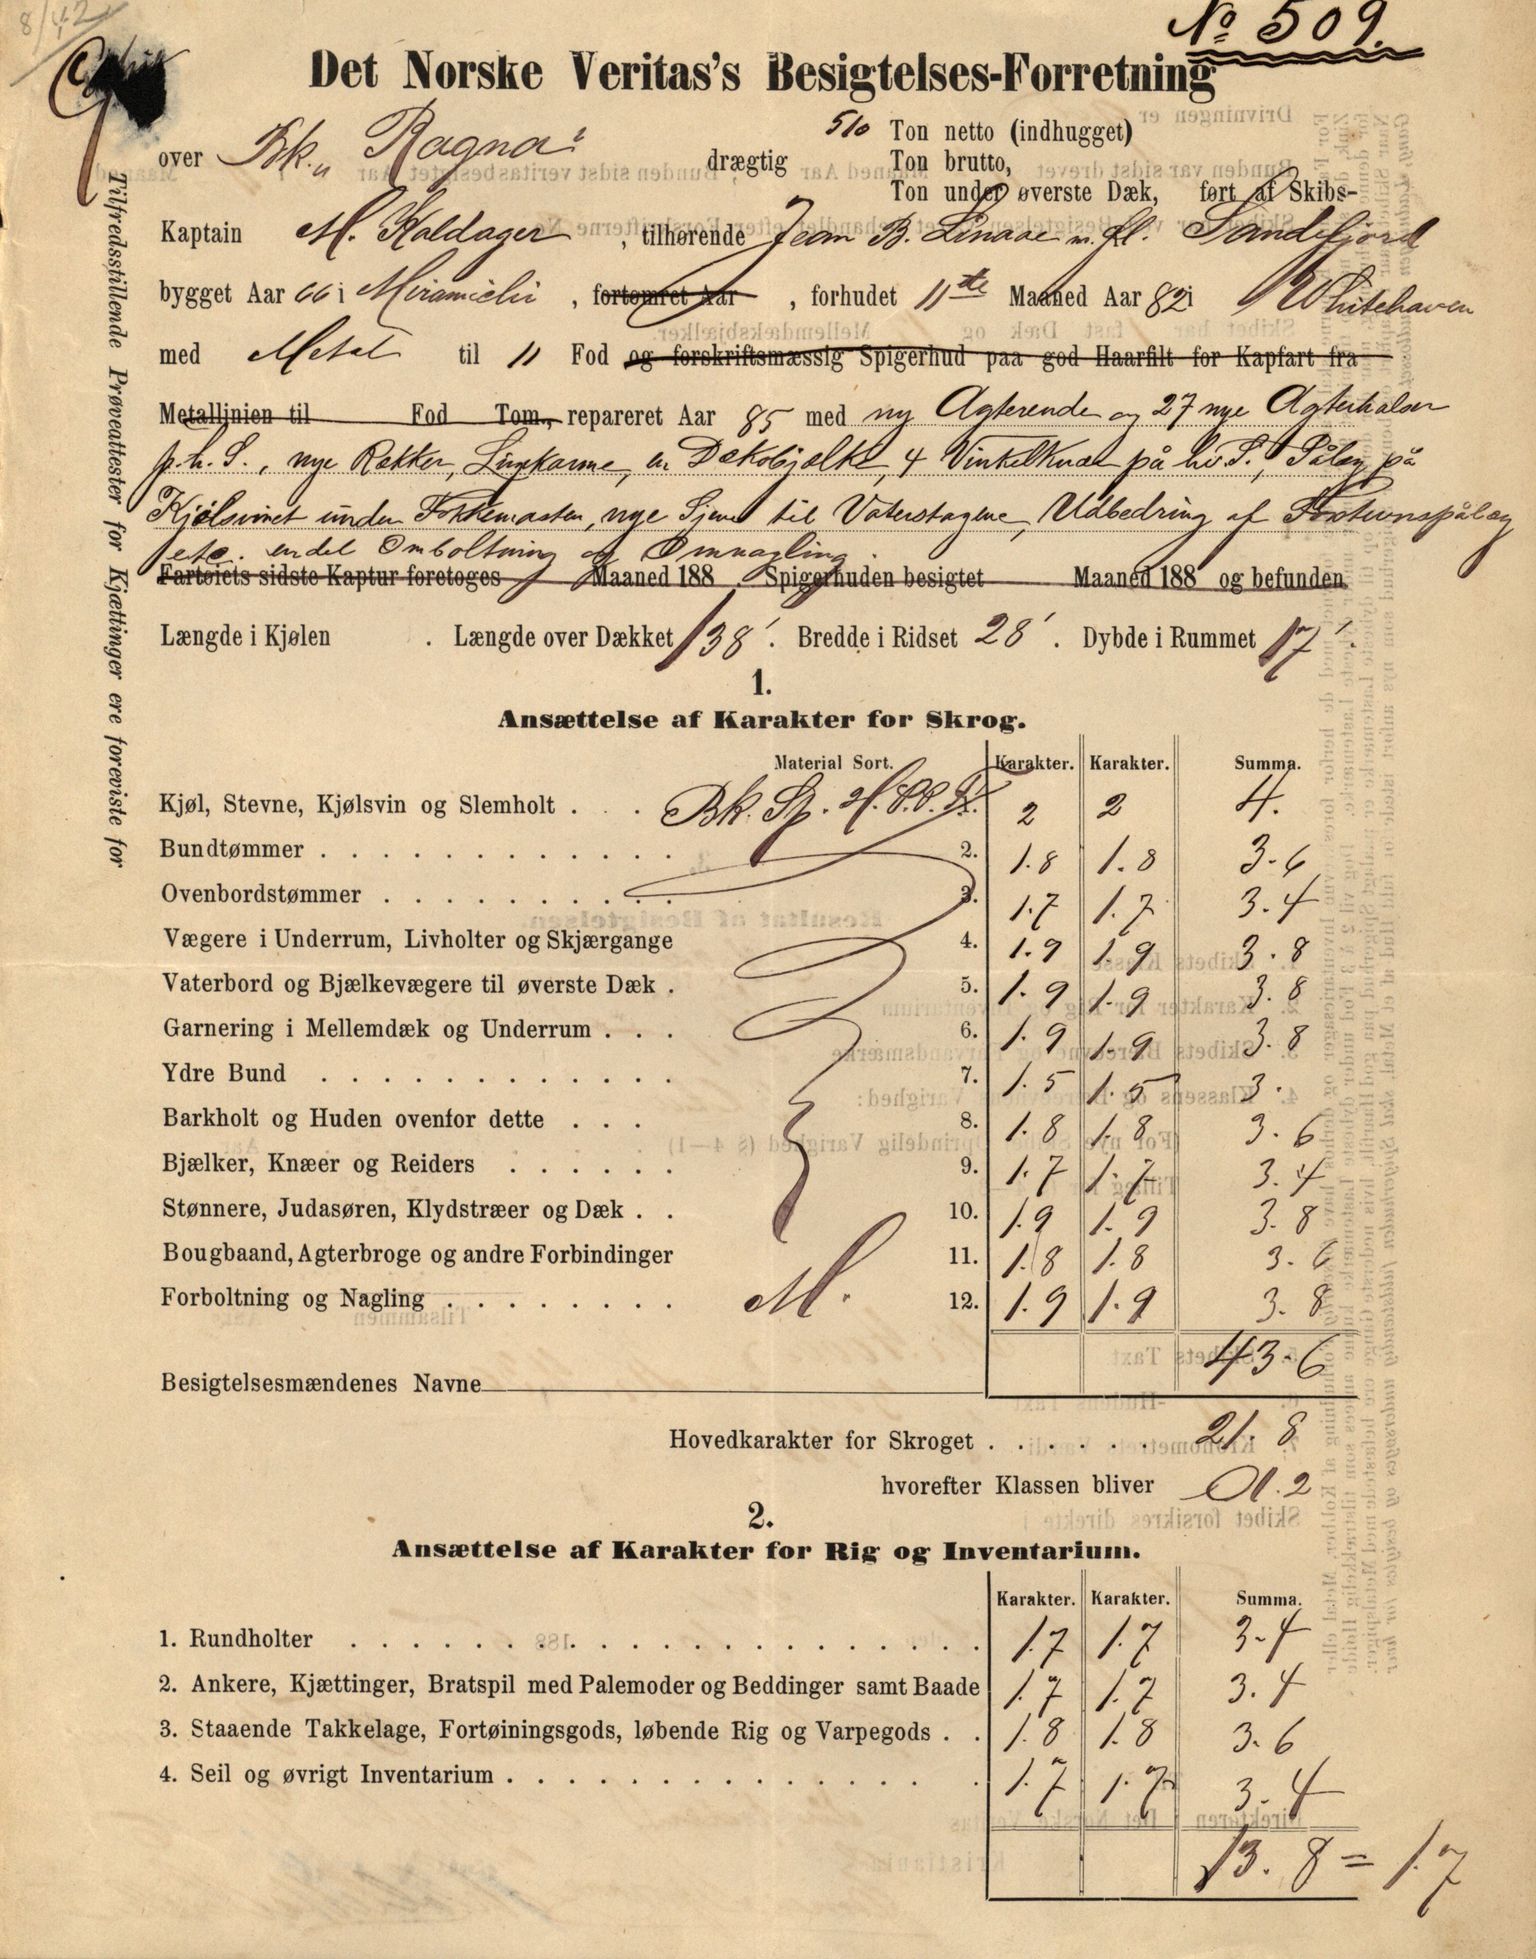 8/42
No 509.
Det Norske Veritas's Besigtelses-Forretning
over Bk. „Ragna" drægtig 510 Ton netto (indhugget)
Ton brutto,
Ton under øverste Dæk, ført af Skibs-
Kaptain M. Kaldager, tilhørende Jean B. Linaae m. fl. Sandefjord
bygget Aar 66 i Miramichi, fortømret Aar, forhudet 11te Maaned Aar 82 i Whitehaven
med Metal til 11 Fod og forskriftsmæssig Spigerhud paa god Haarfilt for Kapfart fra
Metallinien til Fod Tom., repareret Aar 85 med ny Agterende og 27 nye Agterhalser
p. h. S., nye Røkker, Linkarme, en Dæksbjælke, 4 Vinkelknæ på hv. S., Pålæg på
Kjølsvinet under Fokkemasten, nye Sjene til Vaterstagene, Udbedring af pålæg
etc. endel Omboltning og Omnagling.
Fartøiets sidste Kaptur foretoges Maaned 188 . Spigerhuden besigtet Maaned 188 og befunden
Længde i Kjølen . Længde over Dækket 138'. Bredde i Ridset 28'. Dybde i Rummet 17'.
Tilfredsstillende Prøveattester for Kjættinger ere foreviste for
1.
Ansættelse af Karakter for Skrog.
Material Sort. Karakter. Karakter. Summa.
Kjøl, Stevne, Kjølsvin og Slemholt . . . Bk. Sp. H. P.P. 2 2 4.
Bundtømmer . . . 2. 1.8 1.8 3.6
Ovenbordstømmer . . . 3. 1.7 1.7 3.4
Vægere i Underrum, Livholter og Skjærgange 4. 1.9 1.9 3.8
Vaterbord og Bjælkevægere til øverste Dæk . 5. 1.9 1.9 3.8
Garnering i Mellemdæk og Underrum . . . 6. 1.9 1.9 3.8
Ydre Bund . . . 7. 1.5 1.5 3.
Barkholt og Huden ovenfor dette . . . 8. 1.8 1.8 3.6
Bjælker, Knæer og Reiders . . . 9. 1.7 1.7 3.4
Stønnere, Judasøren, Klydstræer og Dæk . . 10. 1.9 1.9 3.8
Bougbaand, Agterbroge og andre Forbindinger 11. 1.8 1.8 3.6
Forboltning og Nagling . . . M. 12. 1.9 1.9 3.8
43.6
Besigtelsesmændenes Navne
Hovedkarakter for Skroget . . . 21.8
hvorefter Klassen bliver A.2
2.
Ansættelse af Karakter for Rig og Inventarium.
Karakter. Karakter. Summa.
1. Rundholter . . . 1.7 1.7 3.4
2. Ankere, Kjættinger, Bratspil med Palemoder og Beddinger samt Baade 1.7 1.7 3.4
3. Staaende Takkelage, Fortøiningsgods, løbende Rig og Varpegods . . 1.8 1.8 3.6
4. Seil og øvrigt Inventarium . . . 1.7 1.7 3.4
13.8 = 1.7